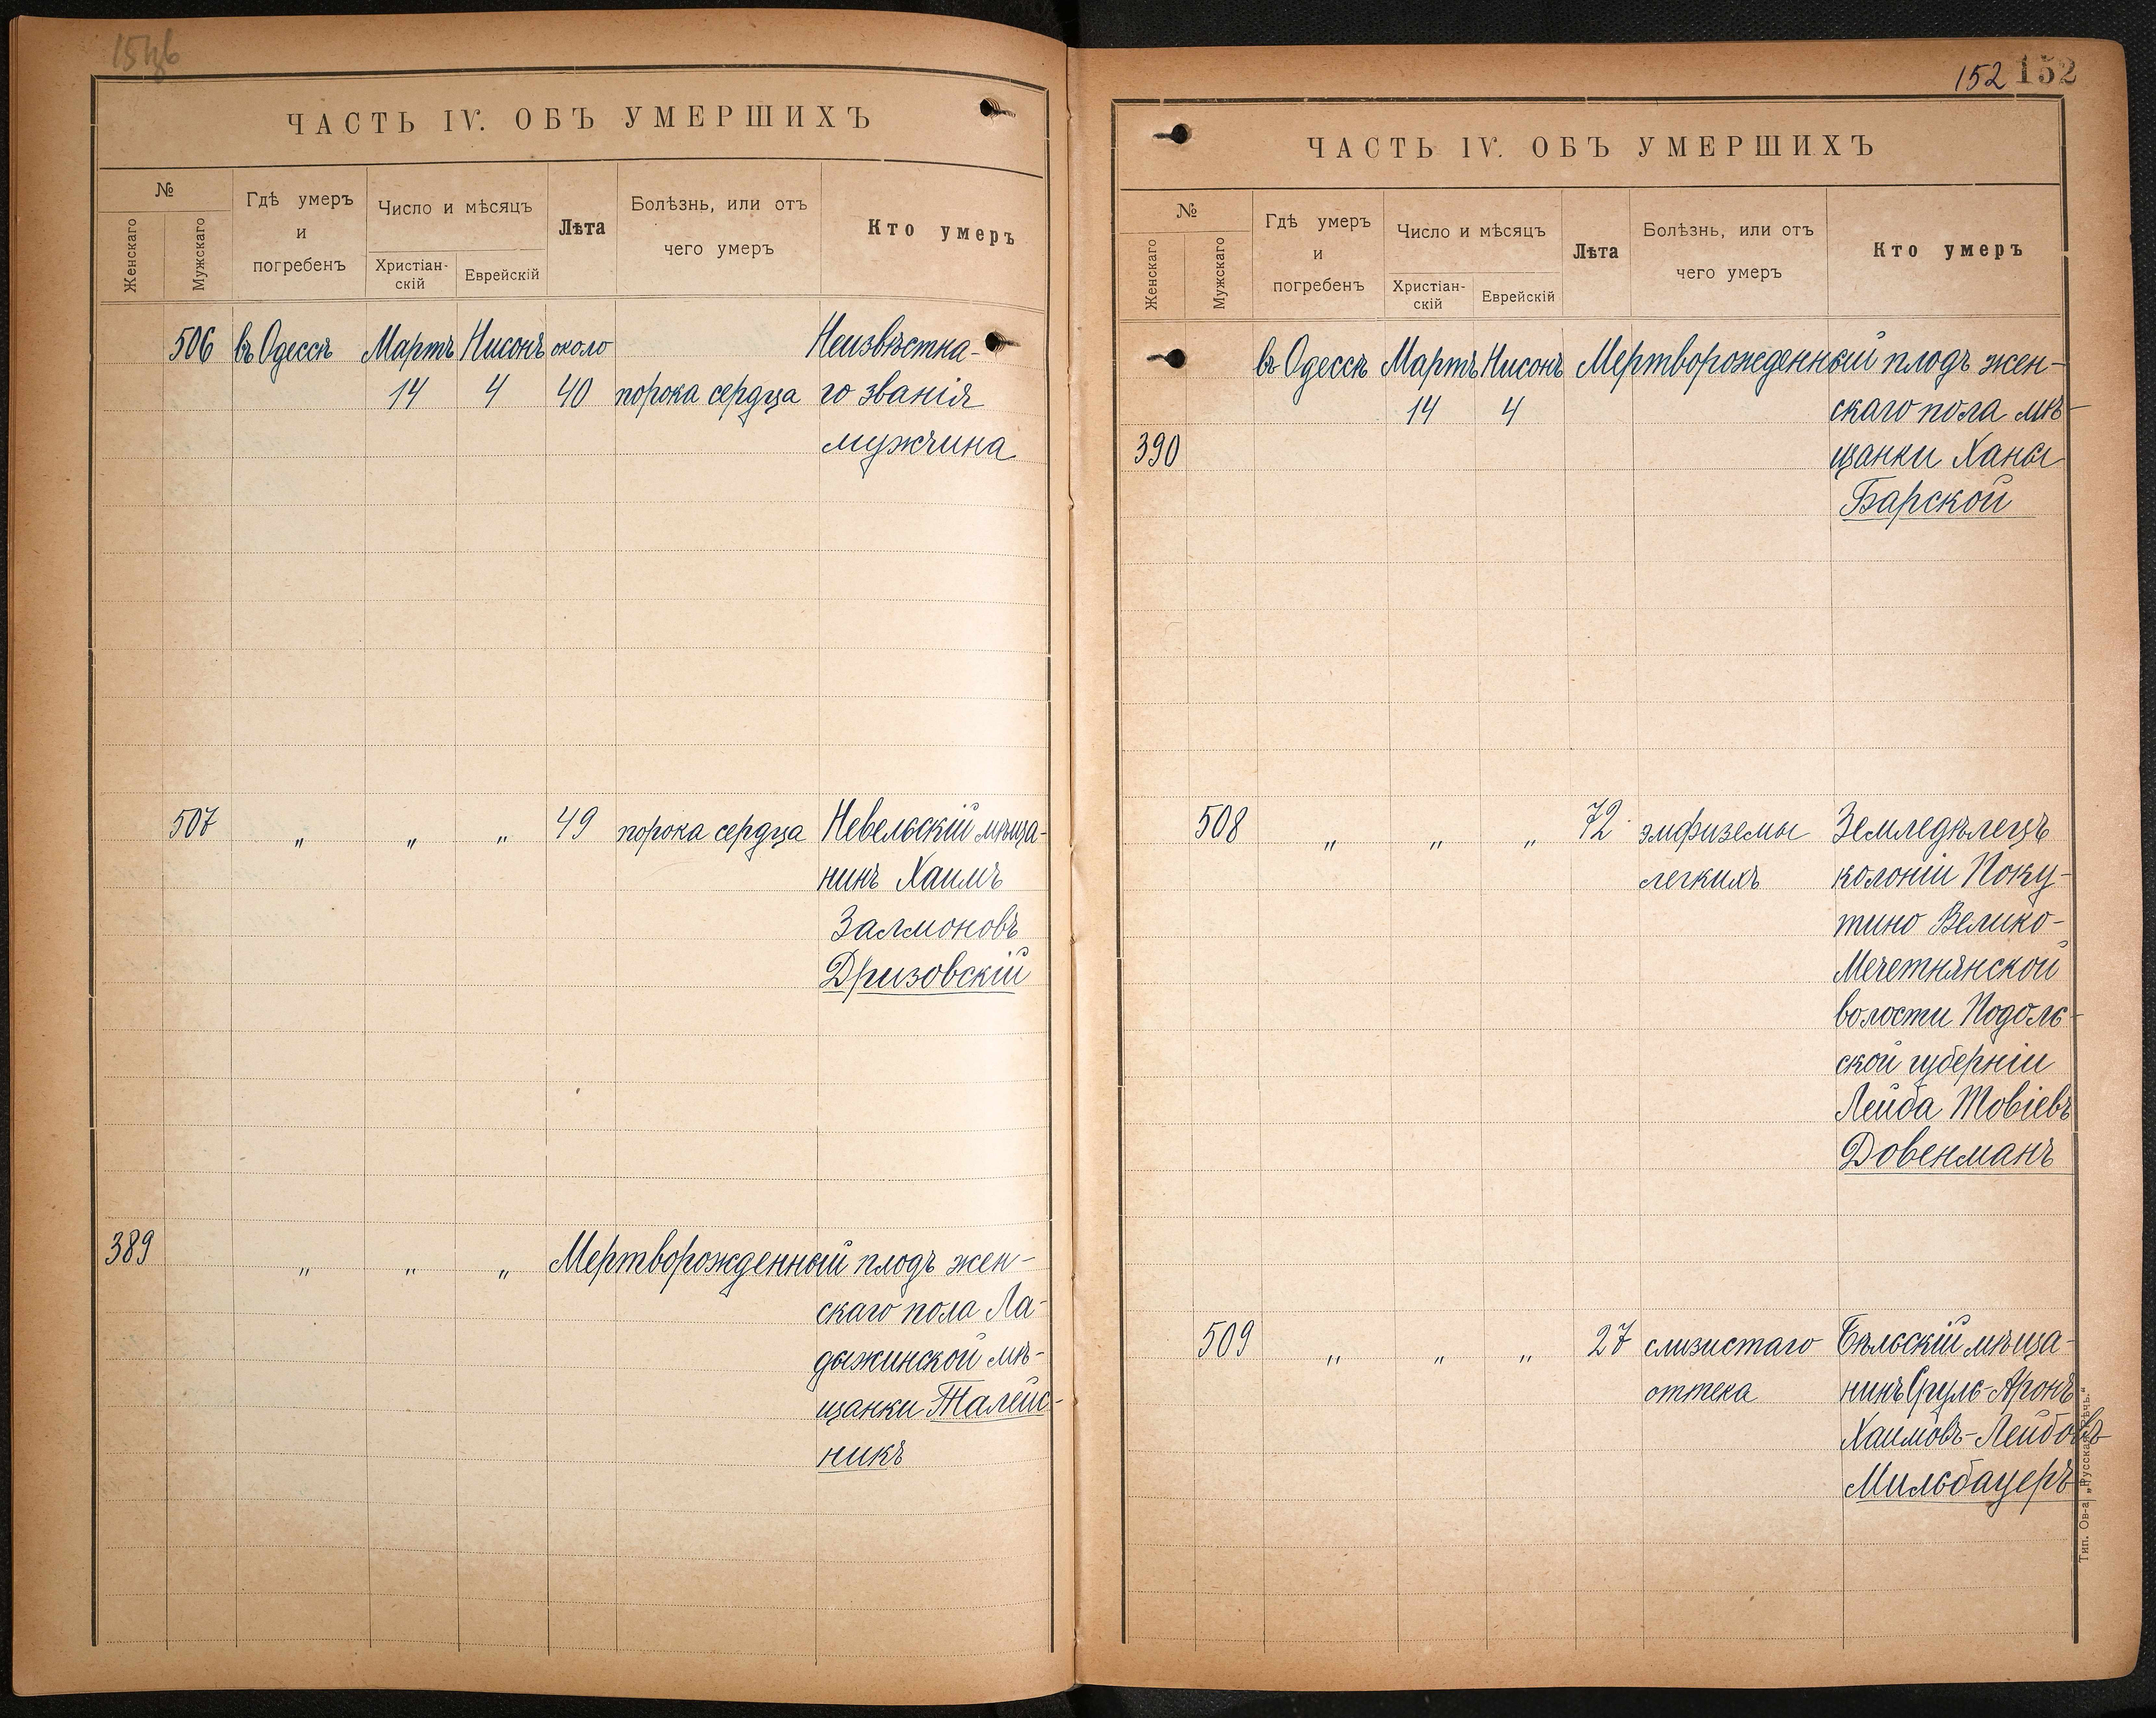 ЧАСТЬ IV. ОБЪ УМЕРШИХЪ
№
Женскаго
Мужскаго
Гдѣ умеръ
и
погребенъ
Число и мѣсяцъ
Христіан-
скій
Еврейскій
Лѣта
Болѣзнь, или отъ
чего умеръ
Кто умеръ
506 въ Одессѣ Мартъ Нисонъ около Неизвѣстна-
14 4 40 порока сердца го званія
мужчина
507 „ „ „ 49 порока сердца Невельскій мѣща-
нинъ Хаимъ
Залмоновъ
Дризовскій
389 „ „ „ Мертворожденный плодъ жен-
скаго пола Ла-
дыжинской мѣ-
щанки Талейс-
никъ
152 152
ЧАСТЬ IV. ОБЪ УМЕРШИХЪ
№
Женскаго
Мужскаго
Гдѣ умеръ
и
погребенъ
Число и мѣсяцъ
Христіан-
скій
Еврейскій
Лѣта
Болѣзнь, или отъ
чего умеръ
Кто умеръ
въ Одессѣ Мартъ Нисонъ Мертворожденный плодъ жен-
14 4 скаго пола мѣ-
390 щанки Ханы
Барской
508 „ „ „ 72 эмфиземы Земледѣлецъ
легкихъ колоніи Поку-
тино Велико-
Мечетнянской
волости Подоль-
ской губерніи
Лейба Товіевъ
Довенманъ
509 „ „ „ 27 слизистаго Бѣльскій мѣща-
оттека нинъ Сруль-Аронъ
Хаимовъ-Лейбовъ
Мильбауеръ
Тип. Ов-а „Русская Рѣчь.“